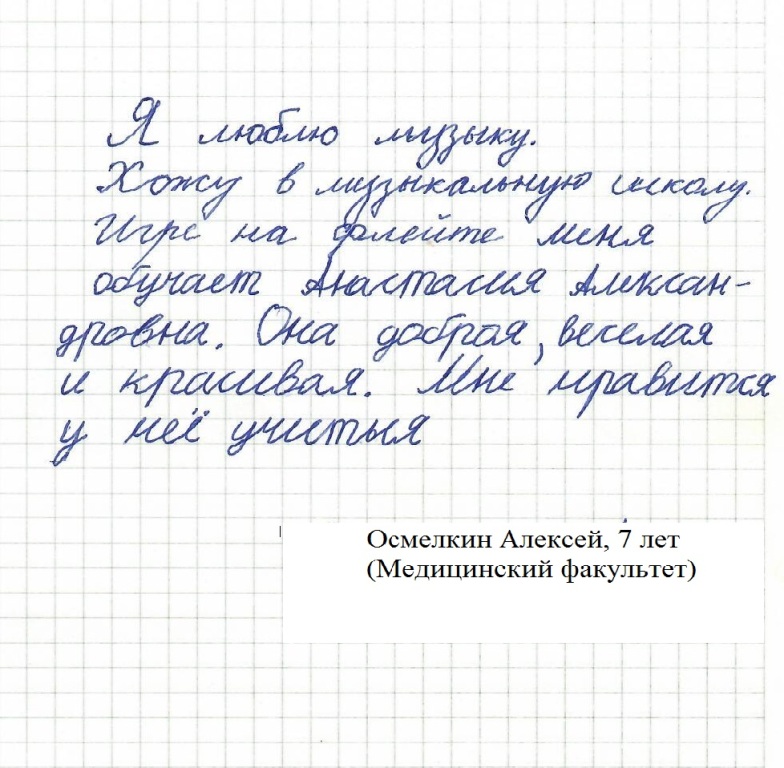 Я люблю музыку.
Хожу в музыкальную школу.
Игре на флейте меня
обучает Анастасия Алексан-
дровна. Она добрая, веселая
и красивая. Мне нравится
у неё учиться
Осмелкин Алексей, 7 лет
(Медицинский факультет)